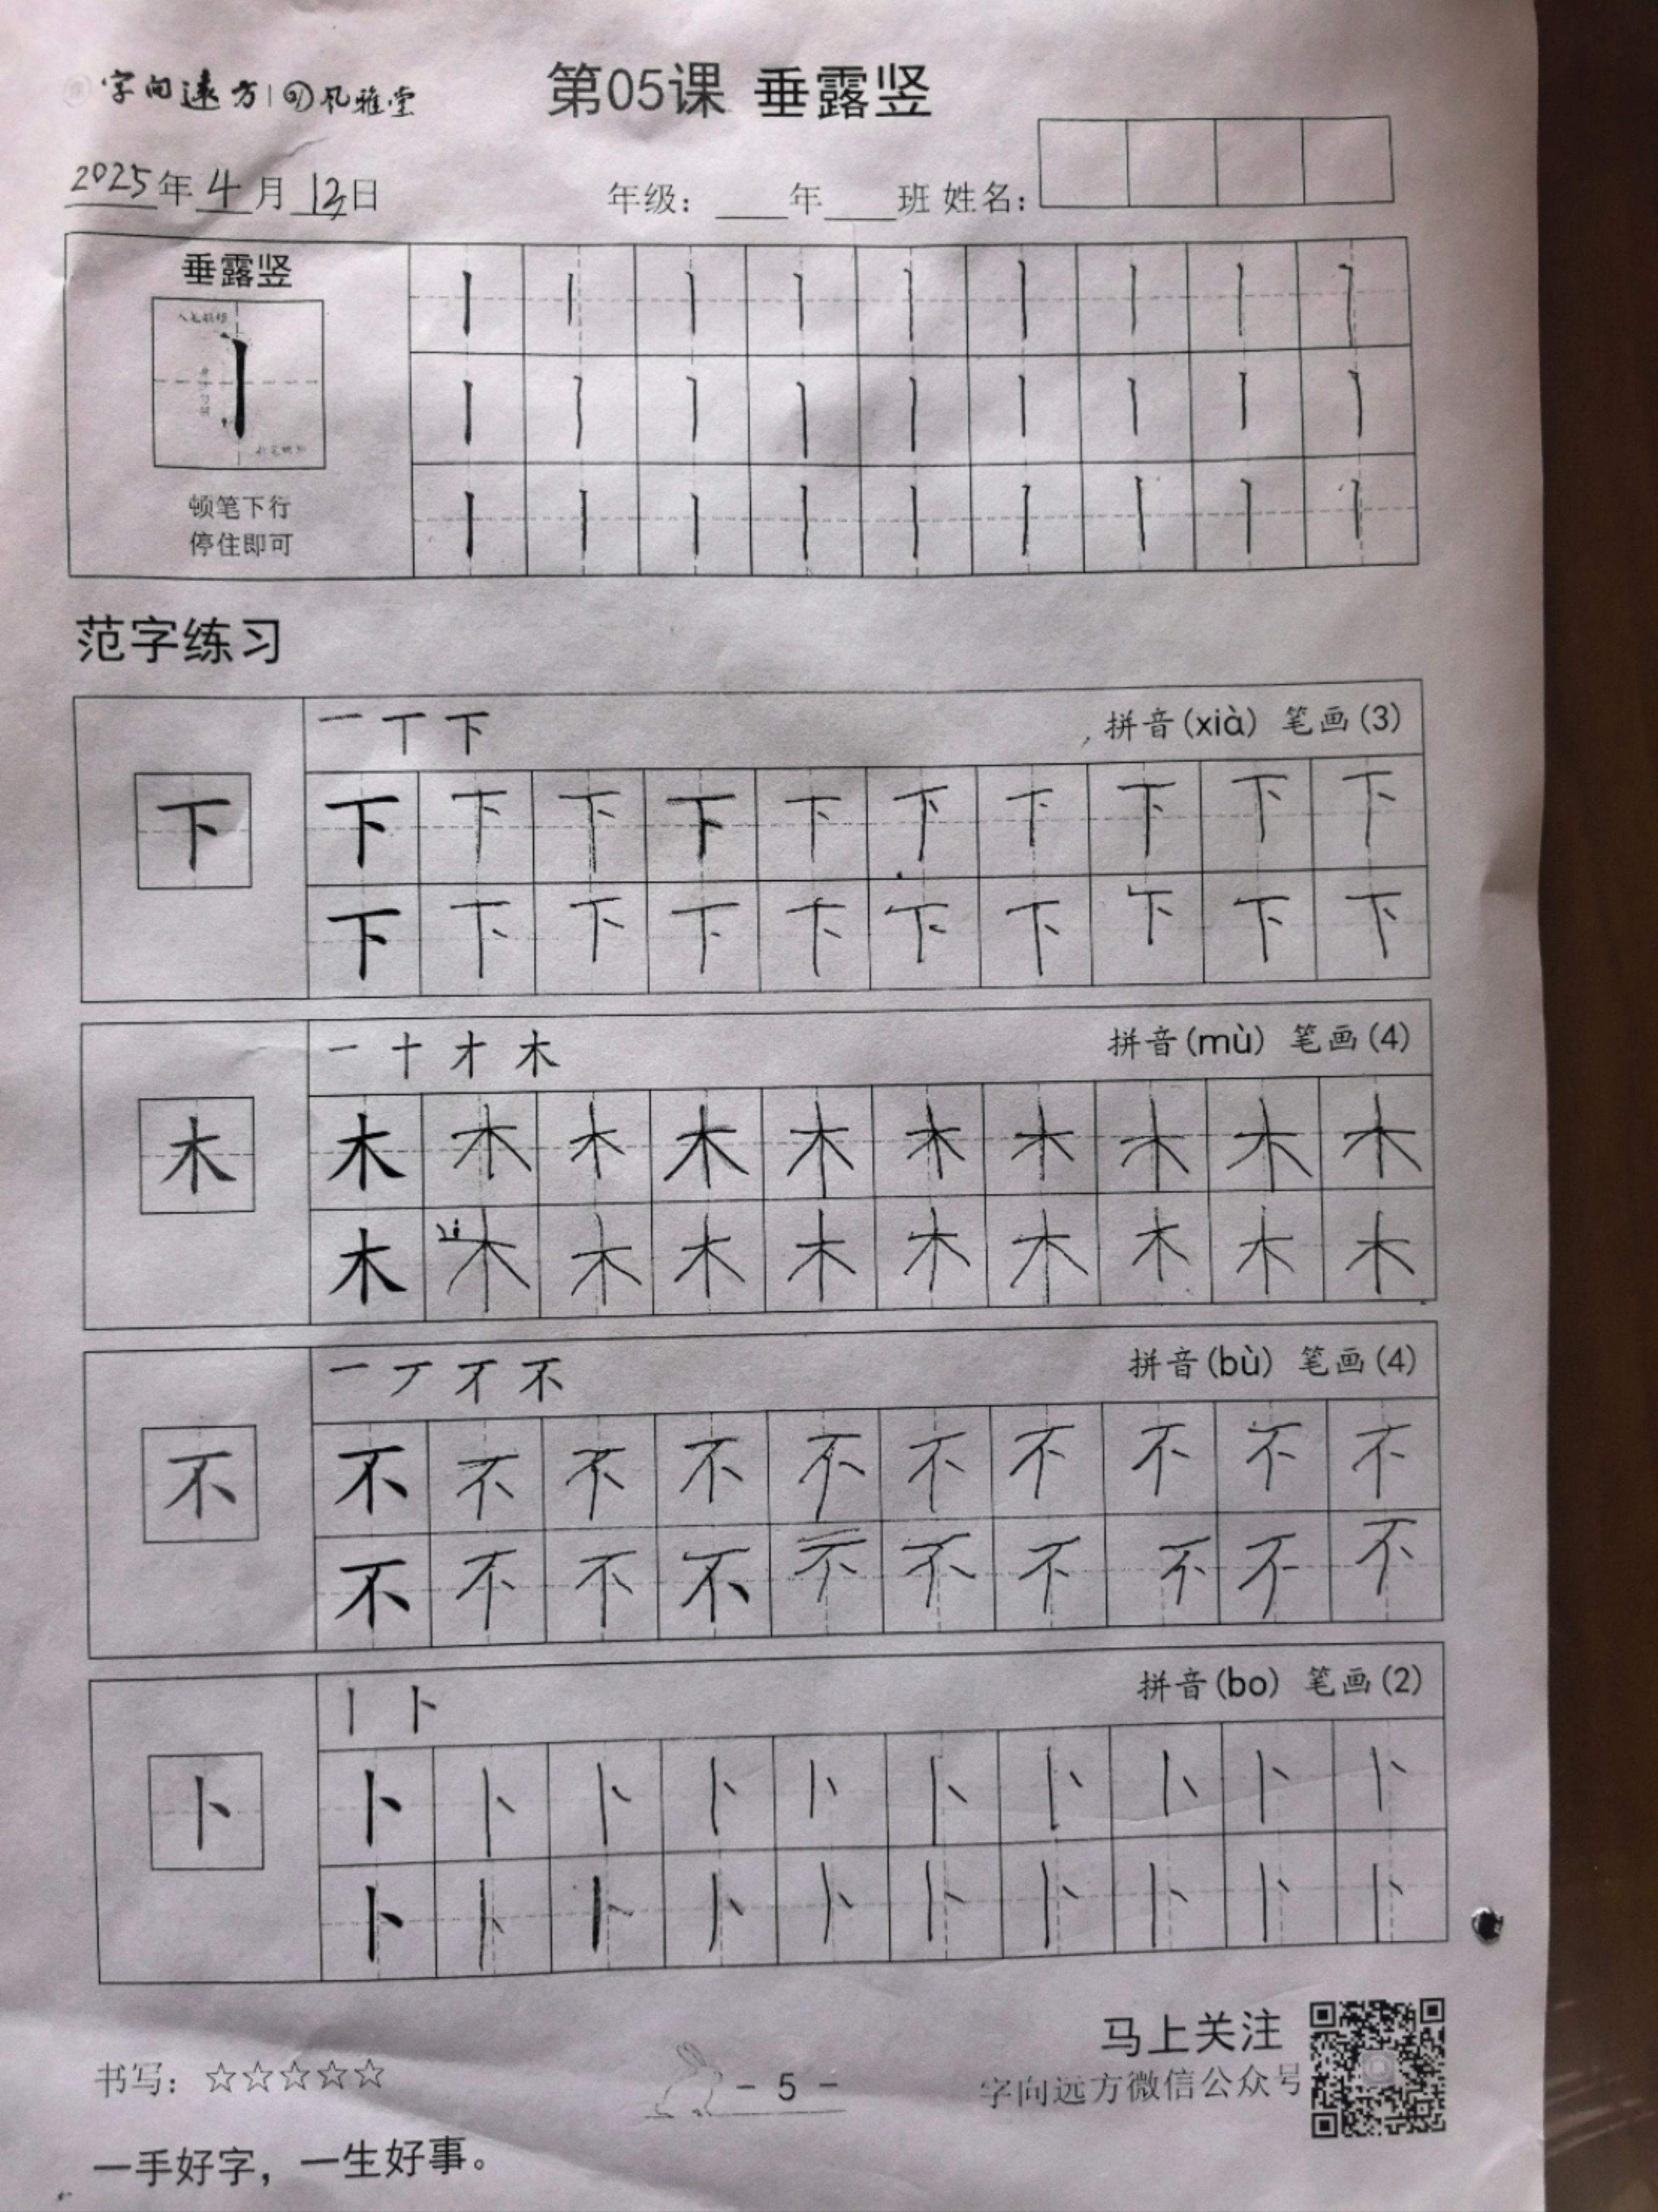 字向远方 风雅堂
第05课 垂露竖
2025年4月12日 年级：____年____班 姓名：
垂露竖
顿笔下行
停住即可
范字练习
一 丅 下 拼音(xià) 笔画(3)
下 下 下 下 下 下 下 下 下 下 下
下 下 下 下 下 下 下 下 下 下
一 十 才 木 拼音(mù) 笔画(4)
木 木 木 木 木 木 木 木 木 木 木
木 木 木 木 木 木 木 木 木 木
一 丆 不 拼音(bù) 笔画(4)
不 不 不 不 不 不 不 不 不 不 不
不 不 不 不 不 不 不 不 不 不
丨 卜 拼音(bo) 笔画(2)
卜 卜 卜 卜 卜 卜 卜 卜 卜 卜 卜
卜 卜 卜 卜 卜 卜 卜 卜 卜 卜
马上关注
书写：☆☆☆☆☆ - 5 - 字向远方微信公众号
一手好字，一生好事。